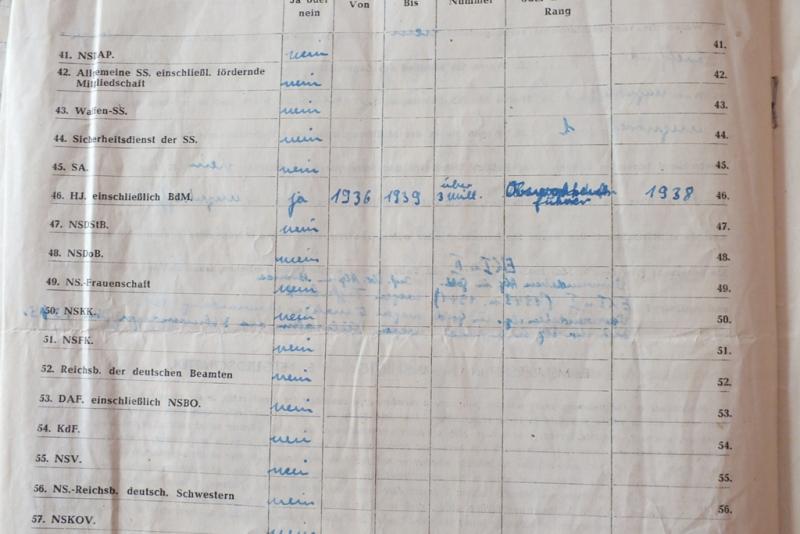 Ja oder Von Bis Nummer
nein Rang
41. NSDAP. nein 41.
42. Allgemeine SS. einschließl. fördernde 42.
Mitgliedschaft nein
43. Waffen-SS. nein 43.
44. Sicherheitsdienst der SS. nein 44.
45. SA. nein 45.
46. HJ. einschließlich BdM. ja 1936 1939 über 3 Mill. führer 1938 46.
47. NSDStB. nein 47.
48. NSDoB. nein 48.
49. NS.-Frauenschaft nein 49.
50. NSKK. nein 50.
51. NSFK. nein 51.
52. Reichsb. der deutschen Beamten nein 52.
53. DAF. einschließlich NSBO. nein 53.
54. KdF. nein 54.
55. NSV. nein 55.
56. NS.-Reichsb. deutsch. Schwestern nein 56.
57. NSKOV.